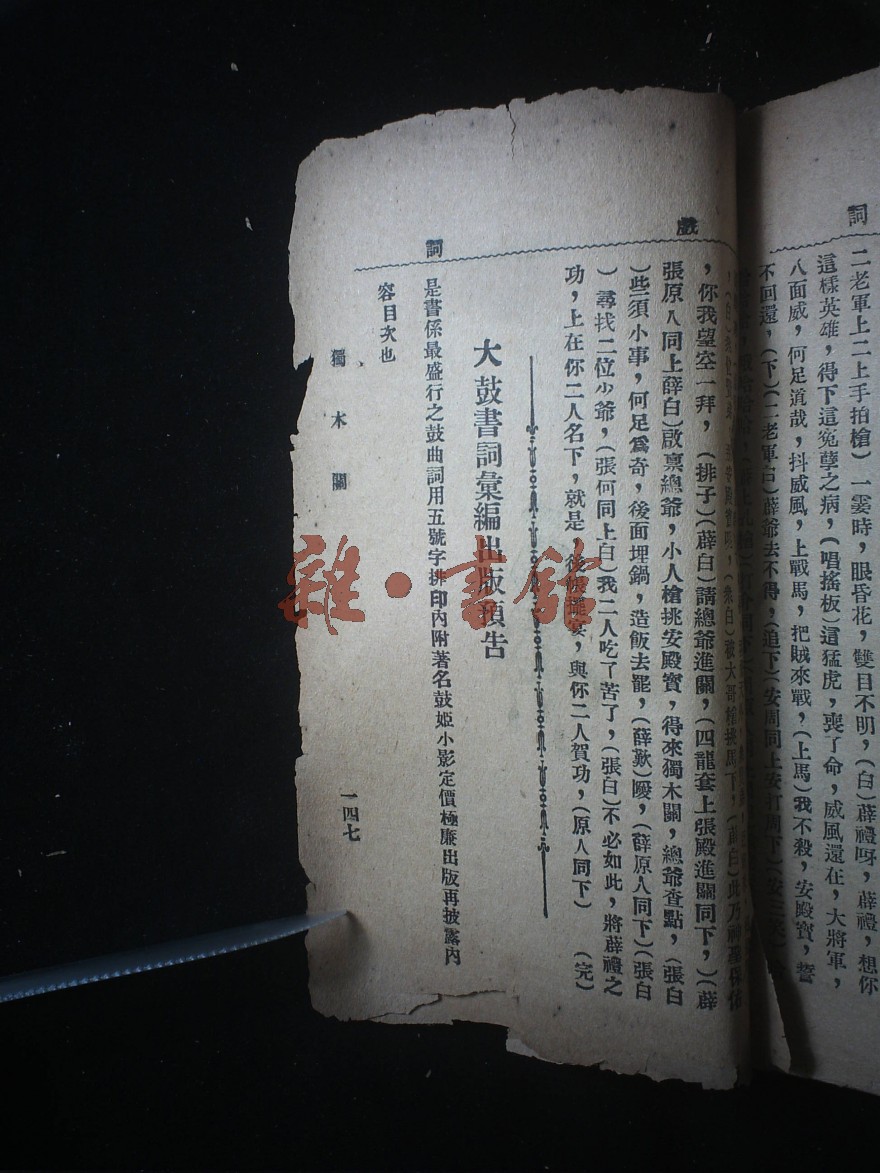 詞
二老軍上二上手拍槍）一霎時，眼昏花，雙目不明，（白）薛禮呀，薛禮，想你
這樣英雄，得下這冤孽之病，（唱搖板）這猛虎，喪了命，威風還在，大將軍，
八面威，何足道哉，抖威風，上戰馬，把賊來戰，（上馬）我不殺，安殿寶，誓
不回還，（下）（二老軍白）薛爺去不得，（追下）（安周同上安打周下）
戲
（衆白）被大哥槍挑馬下，（薛白）此乃神聖保佑
，你我望空一拜，（排子）（薛白）請總爺進關，（四龍套上張殿進關同下，）（薛
張原人同上薛白）啟稟總爺，小人槍挑安殿寶，得來獨木關，總爺查點，（張白
）些須小事，何足爲奇，後面埋鍋，造飯去罷，（薛歎）噯，（薛原人同下）（張白
）尋找二位少爺，（張何同上白）我二人吃了苦了，（張白）不必如此，將薛禮之
功，上在你二人名下，就是，後帳擺宴，與你二人賀功，（原人同下）　（完）
大鼓書詞彙編出版預告
詞
是書係最盛行之鼓曲詞用五號字排印內附著名鼓姬小影定價極廉出版再披露內
容目次也
獨木關
一四七
雜·書館